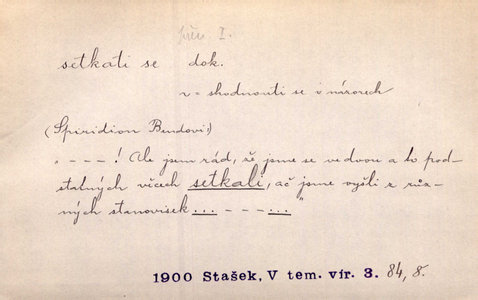 přen. I.
setkati se dok.
v = shodnouti se v názorech
(Spiridion Bendovi:)
„ - - - ! Ale jsem rád, že jsme se ve dvou a to pod-
statných věcech setkali, ač jsme vyšli z růz-
ných stanovisek ... - - - ... “
1900 Stašek, V tem. vír. 3. 84, 8.